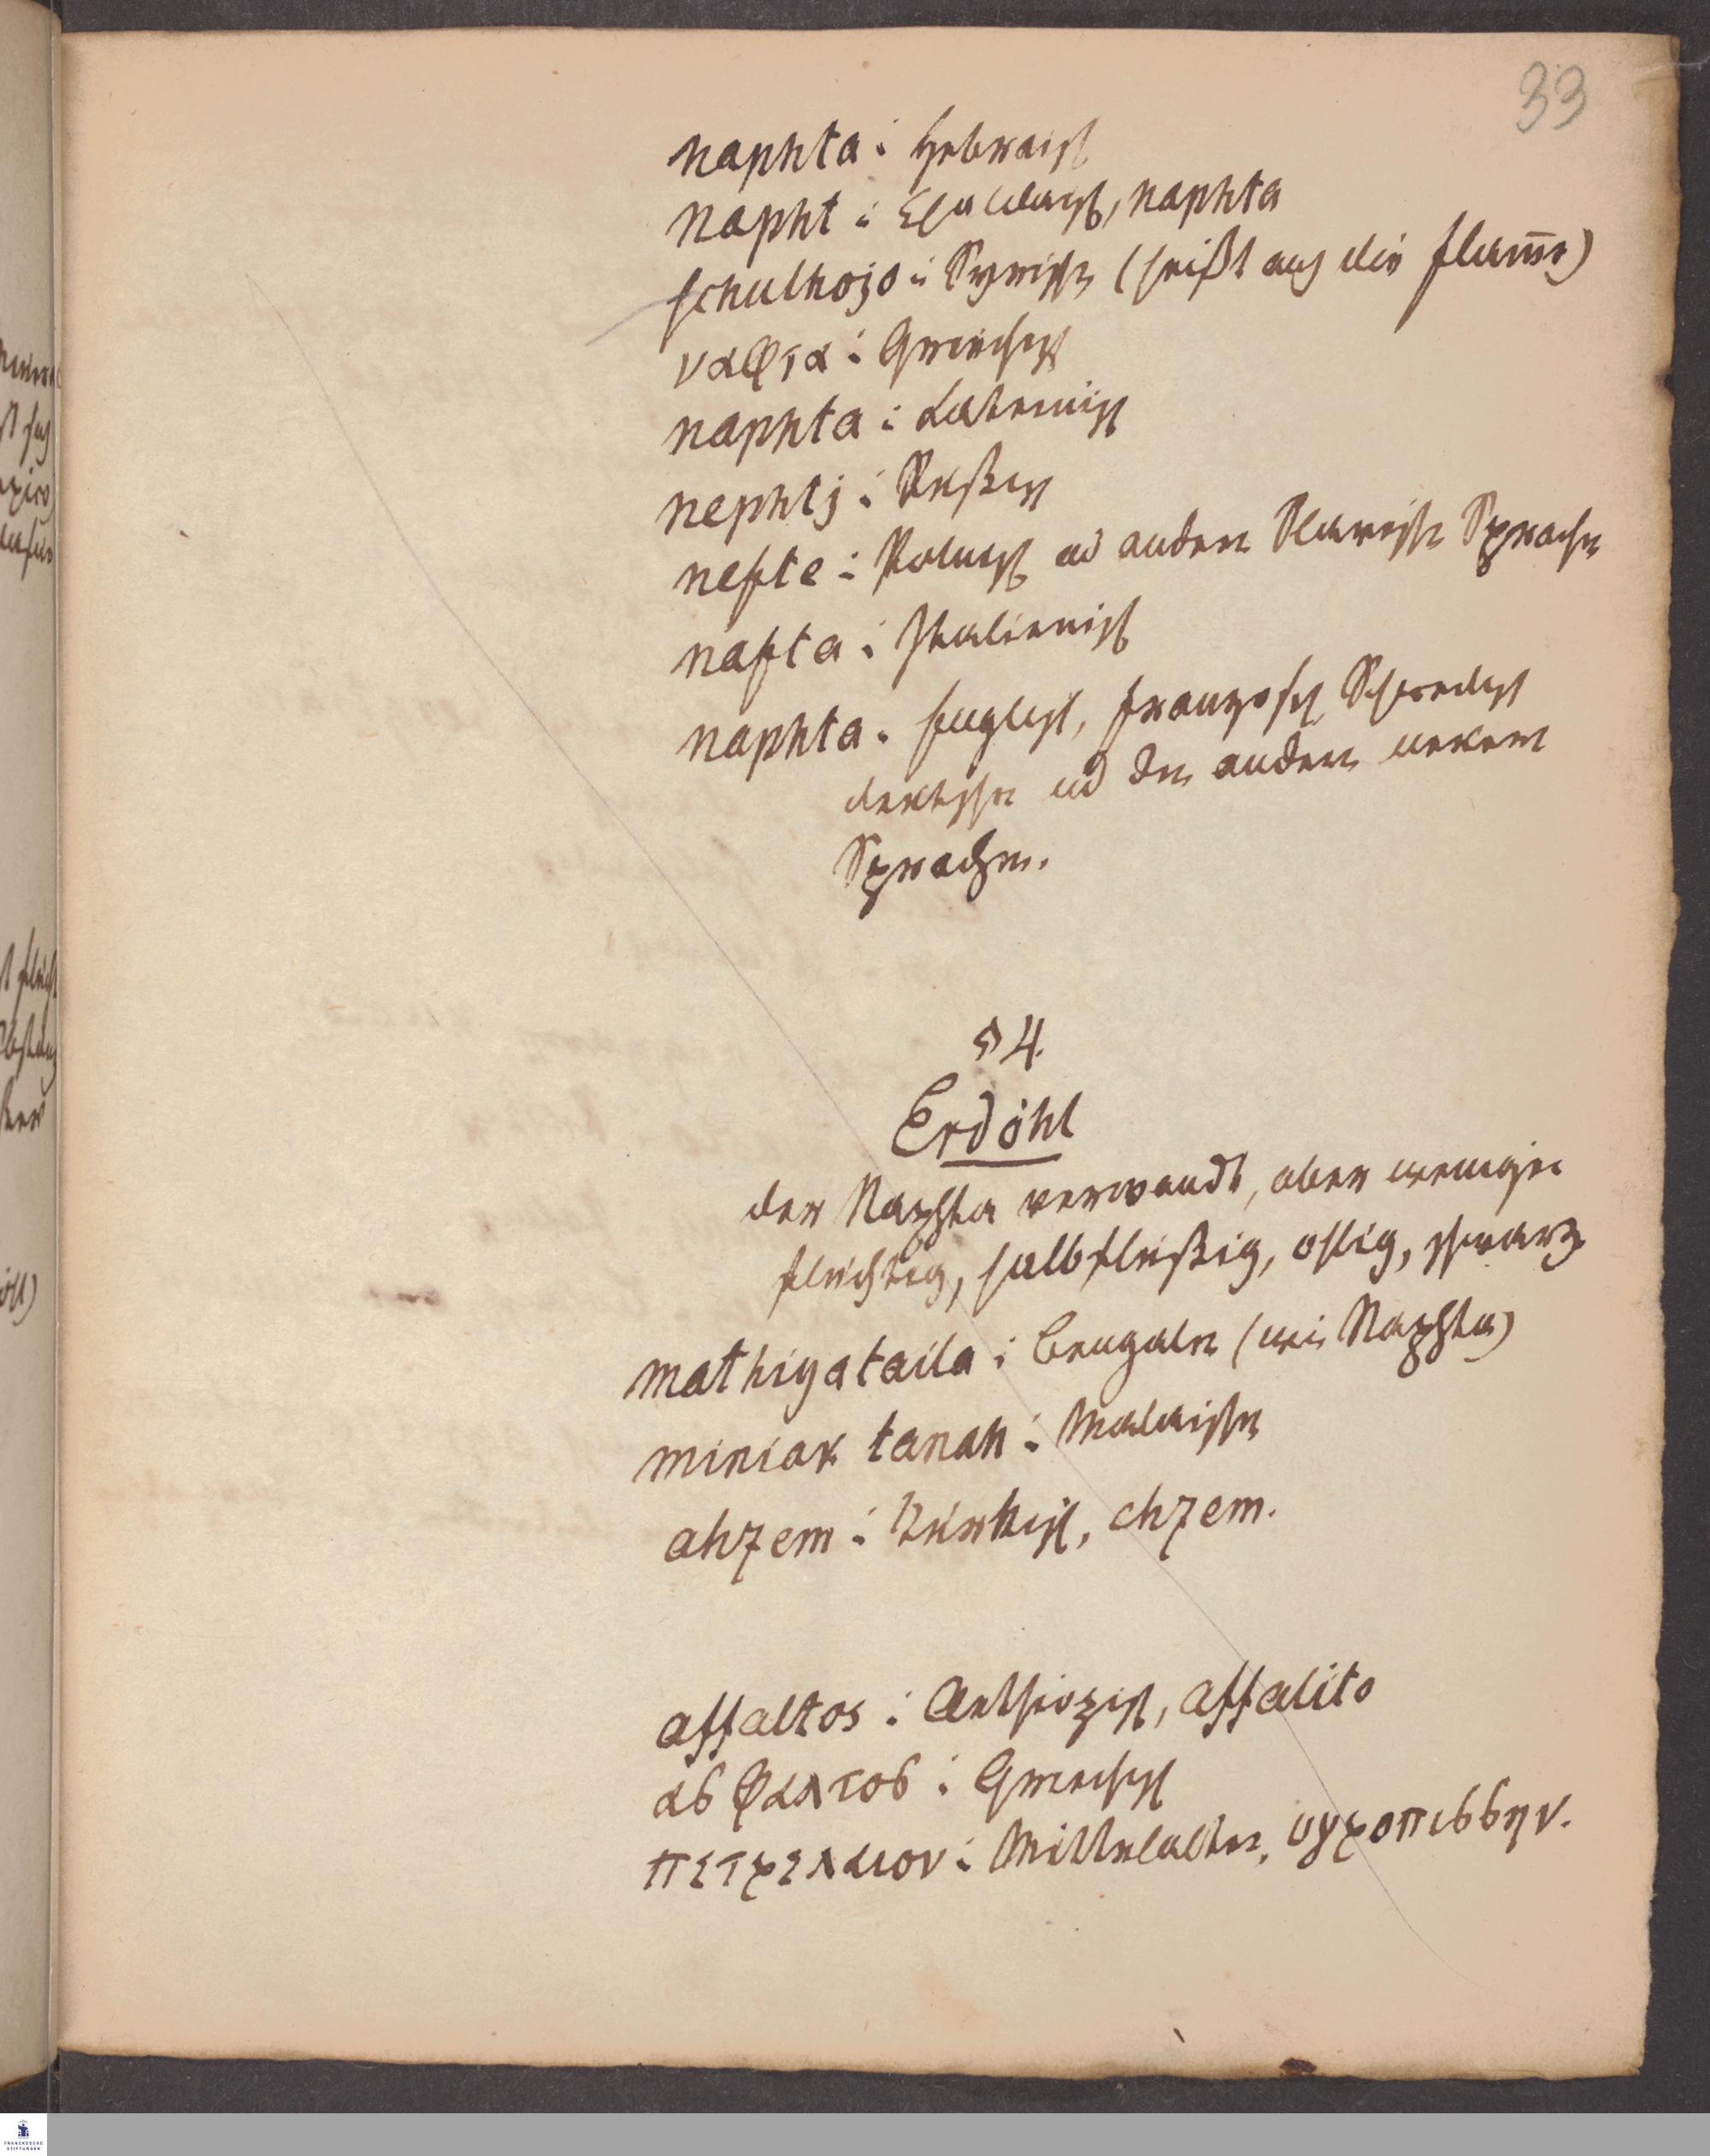 33
naphta : Hebraisch
napht : Chaldaisch, naphta
schulhojo : Syrisch (heißt auch die flam̄e)
ναφτα : Griechisch
naphta : Lateinisch
nephtj : Rußisch
nefte : Polnisch und andern Slawischen Sprachen
nafta : Italienisch
naphta . Englisch, französisch, Schwedisch
deutschen und den andern neuern
Sprachen.
§ 4.
Erdöhl
der Naphta verwandt, aber weniger
flüchtig, halbflüßig, ohlig, schwarz
mathiyataila : Bengalen (wie Naphta)
miniak tanah : Malaischen
ahzem : Türkisch, chzem.
assaltos : Aethiopisch, assalito
ασφαλτοσ : Griechisch
πετρελαιον : Mittelalter, υγροπισσην.
FRANCKESCHE
STIFTUNGEN